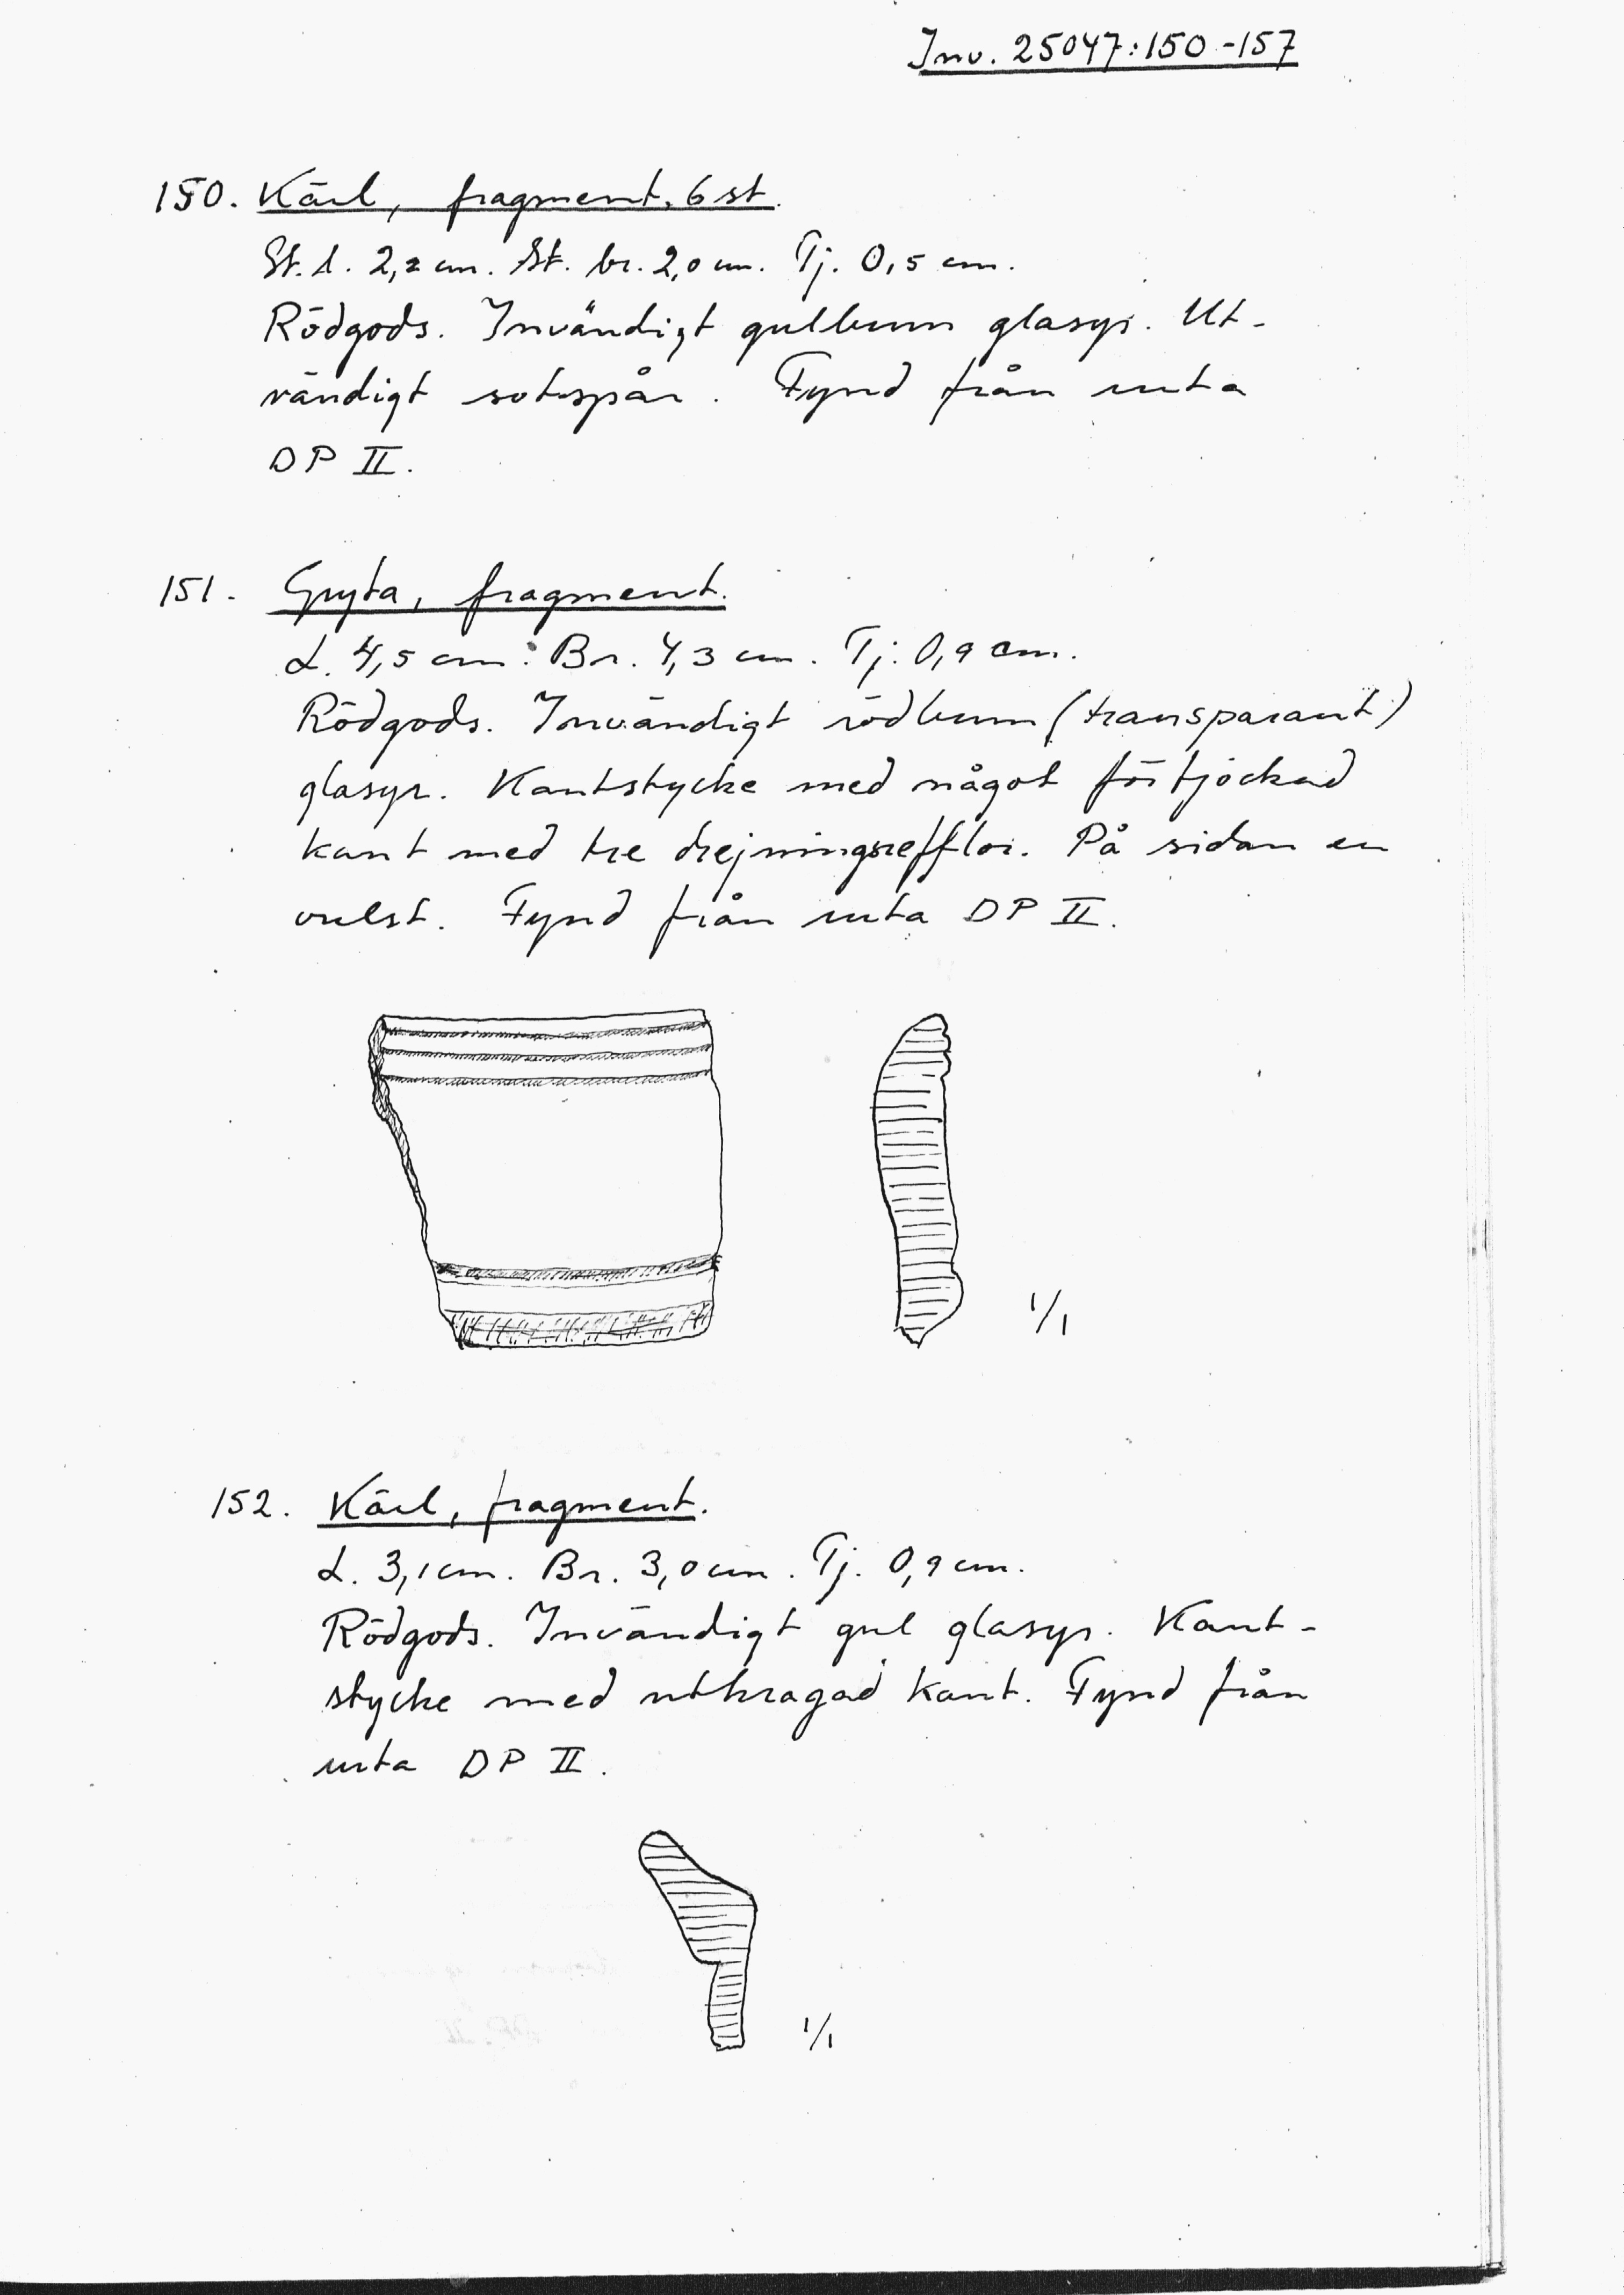 Inv. 25047:150-157
150. Kärl, fragment. 6 st.
St. l. 2,2 cm. St. br. 2,0 cm. Tj. 0,5 cm.
Rödgods. Invändigt gulbrun glasyr. Ut-
vändigt sotspår. Fynd från ruta
DP II.
151. Gryta, fragment.
L. 4,5 cm. Br. 4,3 cm. Tj. 0,9 cm.
Rödgods. Invändigt rödbrun (transparant)
glasyr. Kantstycke med något förtjockad
kant med tre drejningsrefflor. På sidan en
vulst. Fynd från ruta DP II.
1/1
152. Kärl, fragment.
L. 3,1 cm. Br. 3,0 cm. Tj. 0,9 cm.
Rödgods. Invändigt gul glasyr. Kant-
stycke med utkragad kant. Fynd från
ruta DP II.
1/1